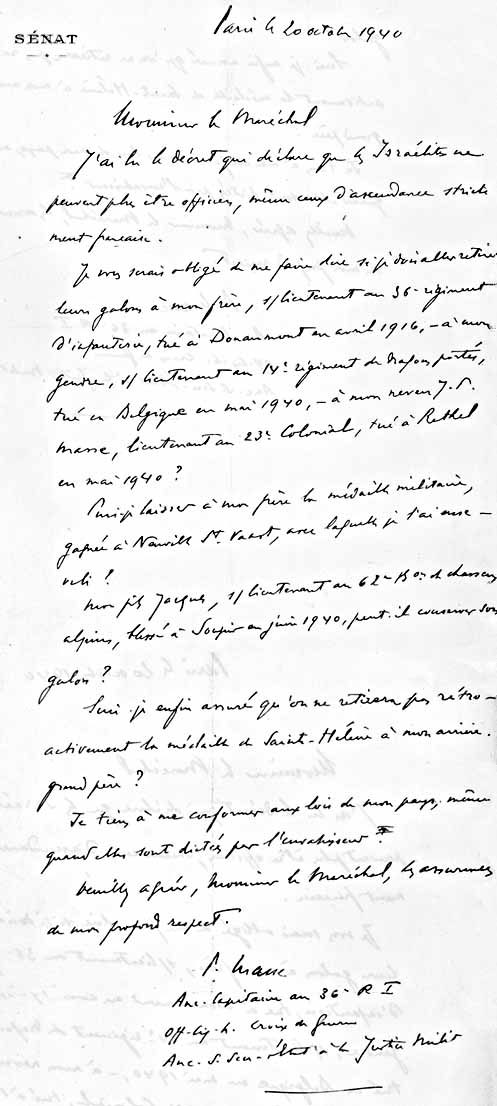 Paris le 20 octobre 1940
SÉNAT
Monsieur le Maréchal
J'ai lu le décret qui déclare que les Israélites ne
peuvent plus être officiers, même ceux d'ascendance stricte
ment française.
Je vous serais obligé de me faire dire si je dois aller retirer
leurs galons à mon frère, s/lieutenant au 36e régiment
d'infanterie, tué à Douaumont en avril 1916, – à mon
gendre, s/lieutenant au 14e régiment de dragons portés,
tué en Belgique en mai 1940, – à mon neveu J.P.
Masse, lieutenant au 23e Colonial, tué à Rethel
en mai 1940 ?
Puis-je laisser à mon frère la médaille militaire,
gagnée à Neuville St Vaast, avec laquelle je l'ai ense–
veli ?
Mon fils Jacques, s/lieutenant au 62e Bon de chasseurs
alpins, blessé à Soupir en juin 1940, peut-il conserver son
galon ?
Suis-je enfin assuré qu'on ne retirera pas rétro–
activement la médaille de Sainte-Hélène à mon arrière-
grand père ?
Je tiens à me conformer aux lois de mon pays, même
quand elles sont dictées par l'envahisseur.
Veuillez agréer, Monsieur le Maréchal, les assurances
de mon profond respect.
P. Masse
Anc. Capitaine au 36e R I
Off. Lég. h. Croix de Guerre
Anc. S. Secr. État à la Justice Milit